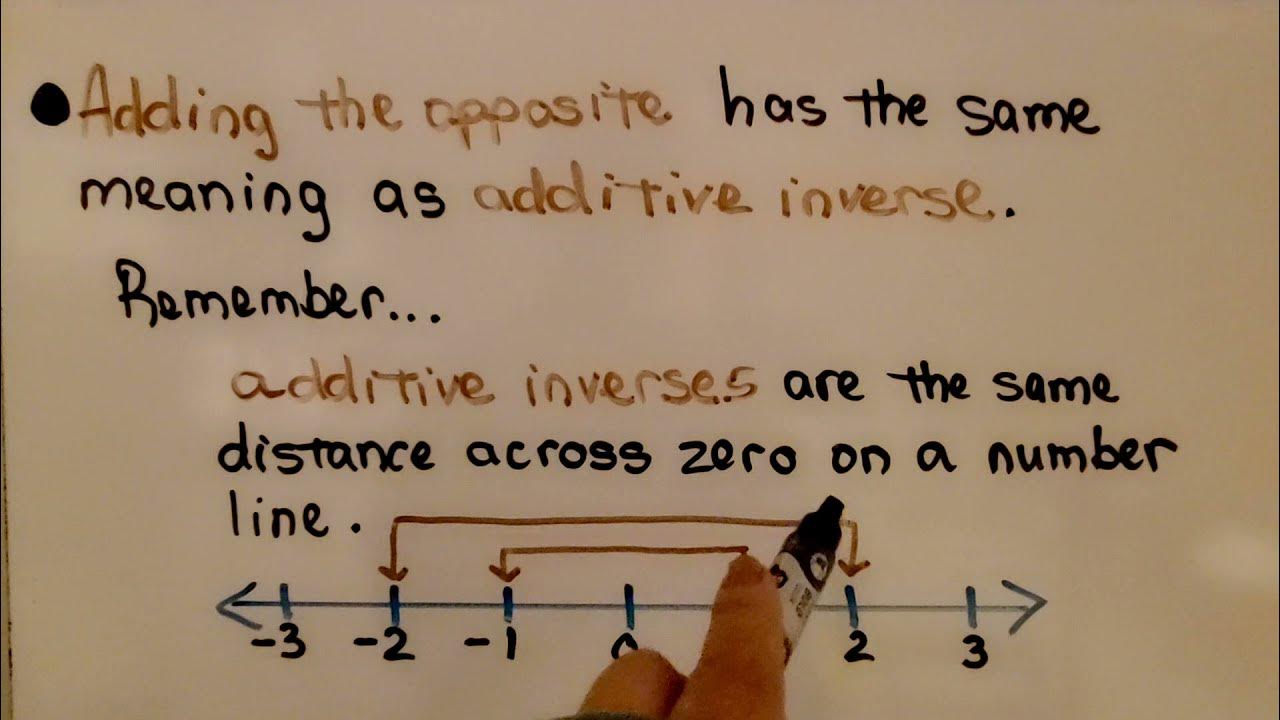 Adding the opposite has the same
meaning as additive inverse.
Remember...
additive inverses are the same
distance across zero on a number
line.
-3 -2 -1 2 3